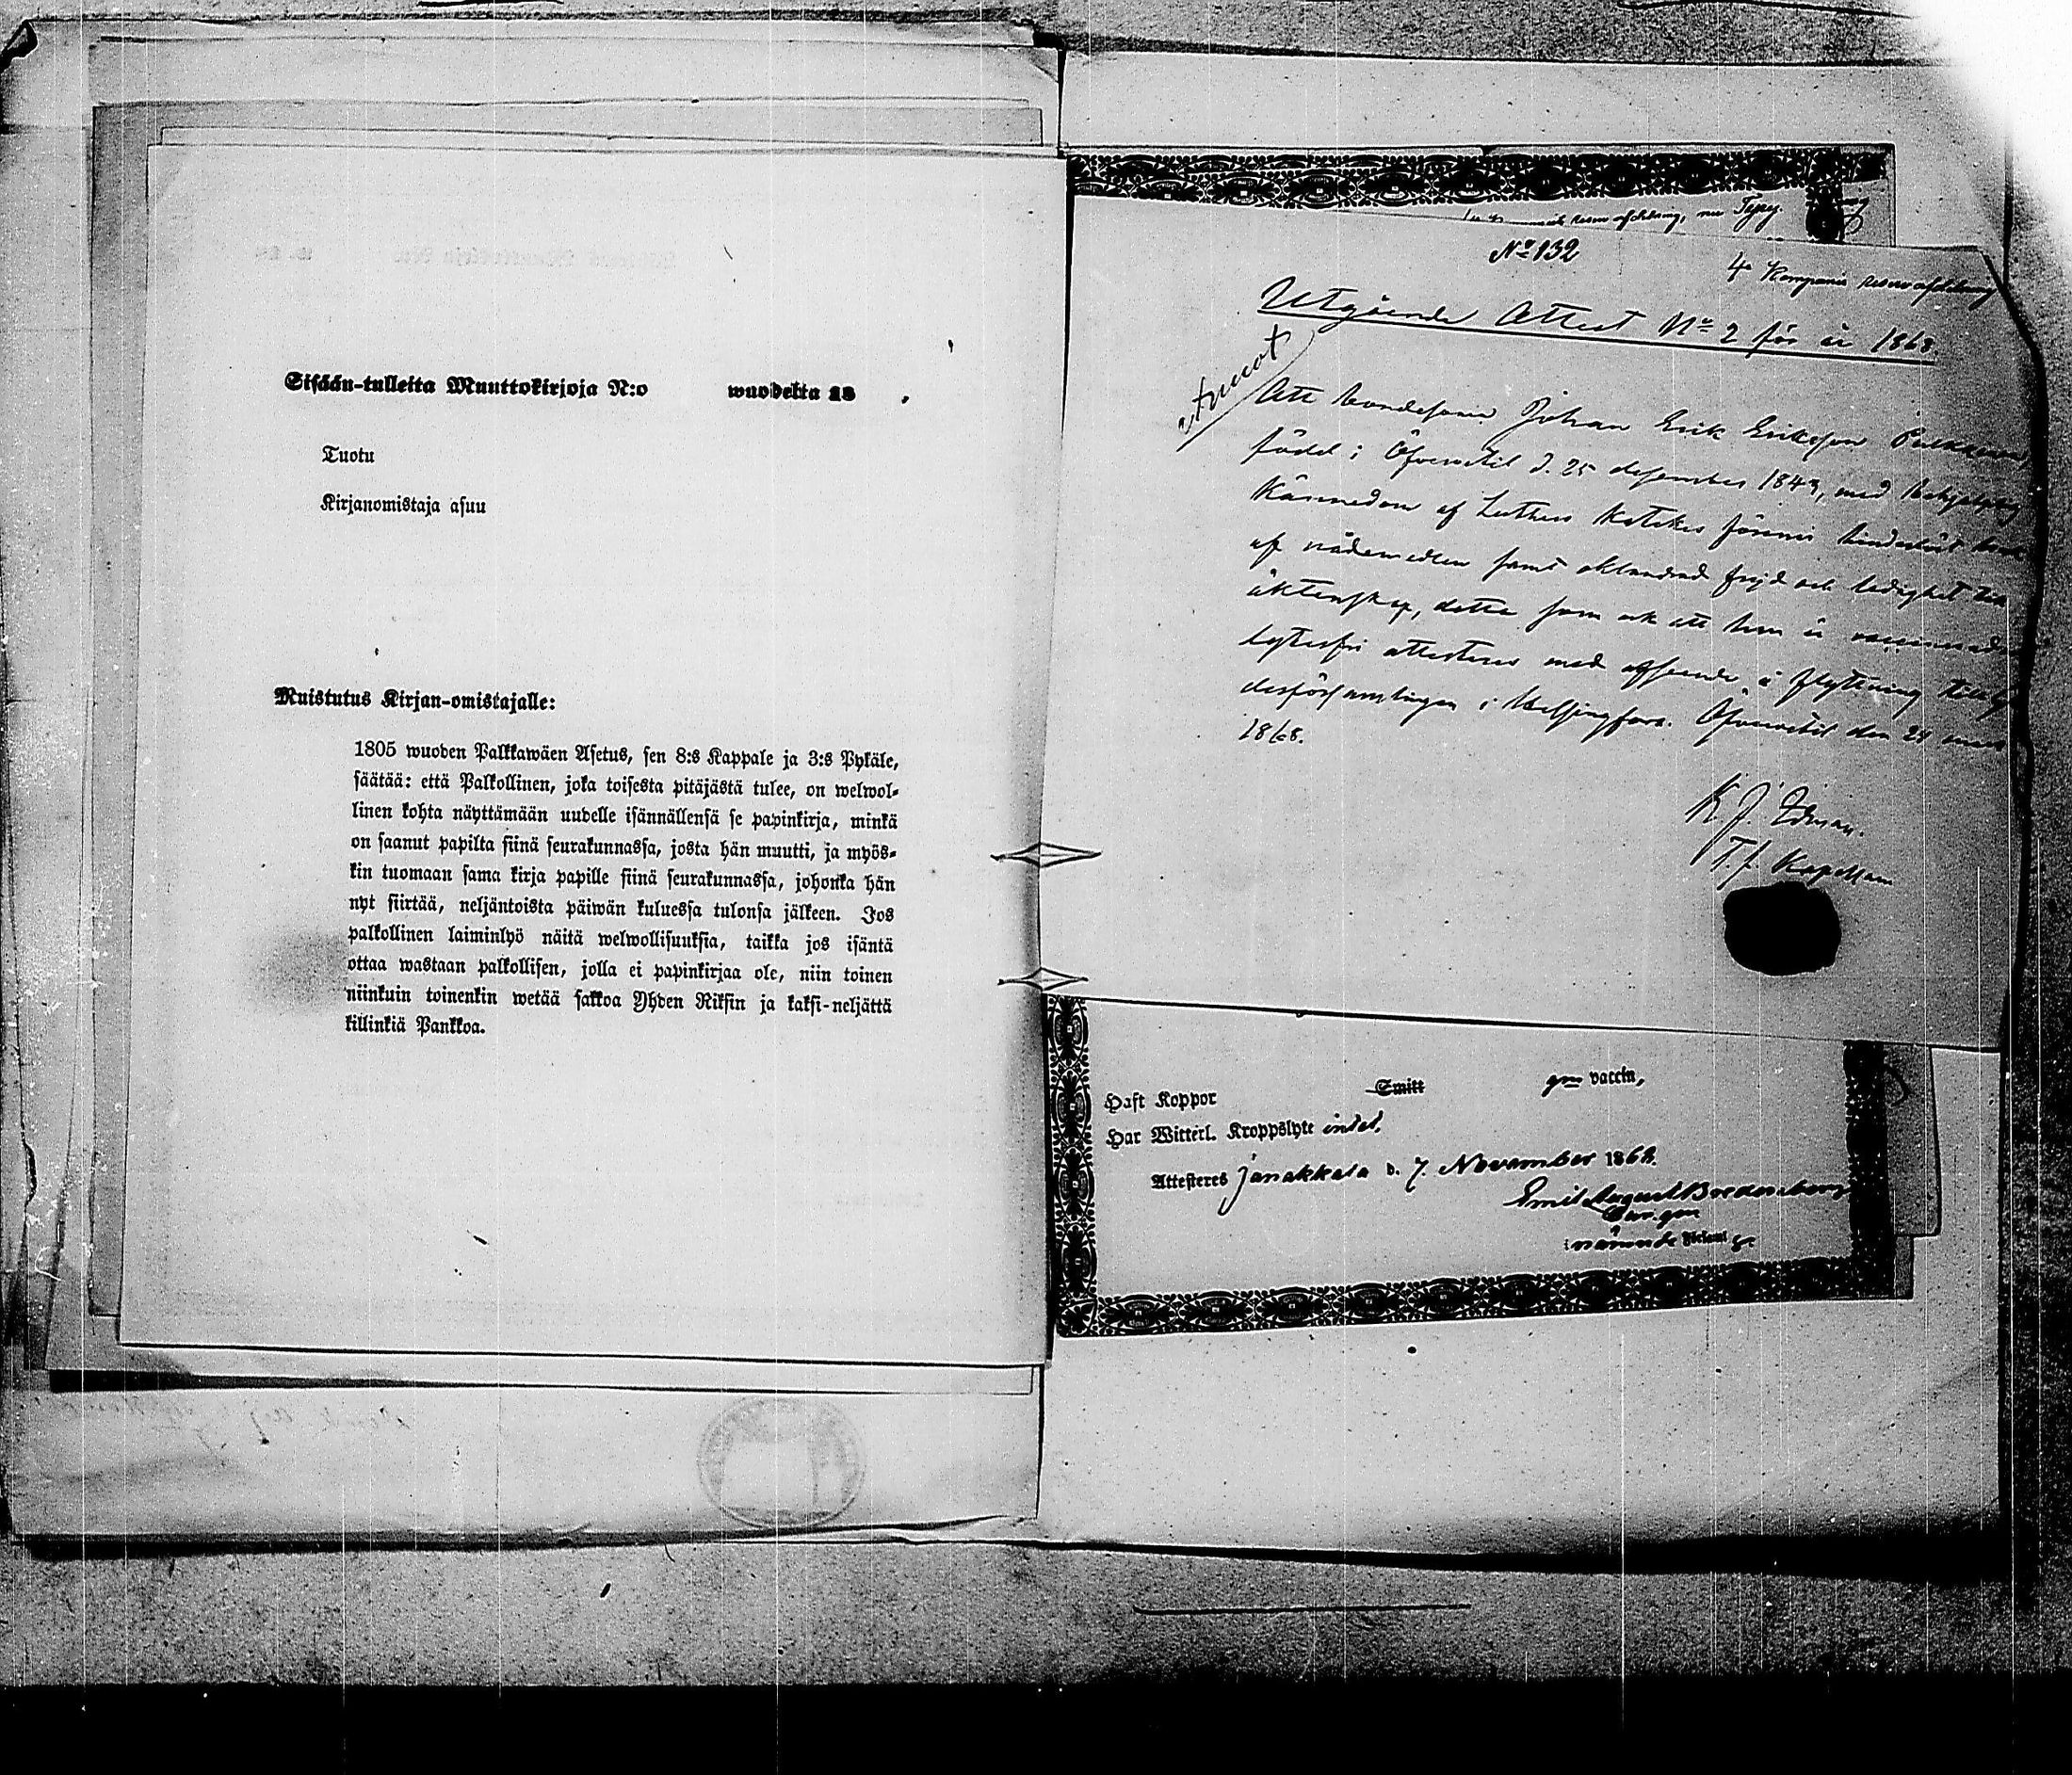 Sisään-tulleita Muuttokirjoja N:o wuodelta 18 .
Tuotu
Kirjanomistaja asuu
Muistutus Kirjan-omistajalle:
1805 wuoden Palkkawäen Asetus, sen 8:s Kappale ja 3:s Pykäle,
säätää: että Palkollinen, joka toisesta pitäjästä tulee, on welwol-
linen kohta näyttämään uudelle isännällensä se papinkirja, minkä
on saanut papilta siinä seurakunnassa, josta hän muutti, ja myös-
kin tuomaan sama kirja papille siinä seurakunnassa, johonka hän
nyt siirtää, neljäntoista päiwän kuluessa tulonsa jälkeen. Jos
palkollinen laiminlyö näitä welwollisuuksia, taikka jos isäntä
ottaa wastaan palkollisen, jolla ei papinkirjaa ole, niin toinen
niinkuin toinenkin wetää sakkoa Yhden Riksin ja kaksi-neljättä
killinkiä Pankkoa.
No 132
4 Kompanie reserv afdelning
Utgående Attest No 2 för år 1868
Att bondesonen Johan Erik Eriksson
född i Öfvervetil d. 25 december 1843, med
kännedom af Luthers Katekes förenar
af nådemedlen samt oklandrad frejd och ledighet till
äktenskap, detta som ock att han är vaccinerad
lytesfri attesteras med afseende å flyttning till
desförsamlingen i Helsingfors. Öfvervetil den 24 mars
1868.
K. J. Edman.
T. f. Kapellan
Haft Koppor Smitt gm vaccin,
Har Witterl. Kroppslyte intet.
Attesteres Janakkala d. 7. November 1868.
Emil August Bredenberg
nämnde